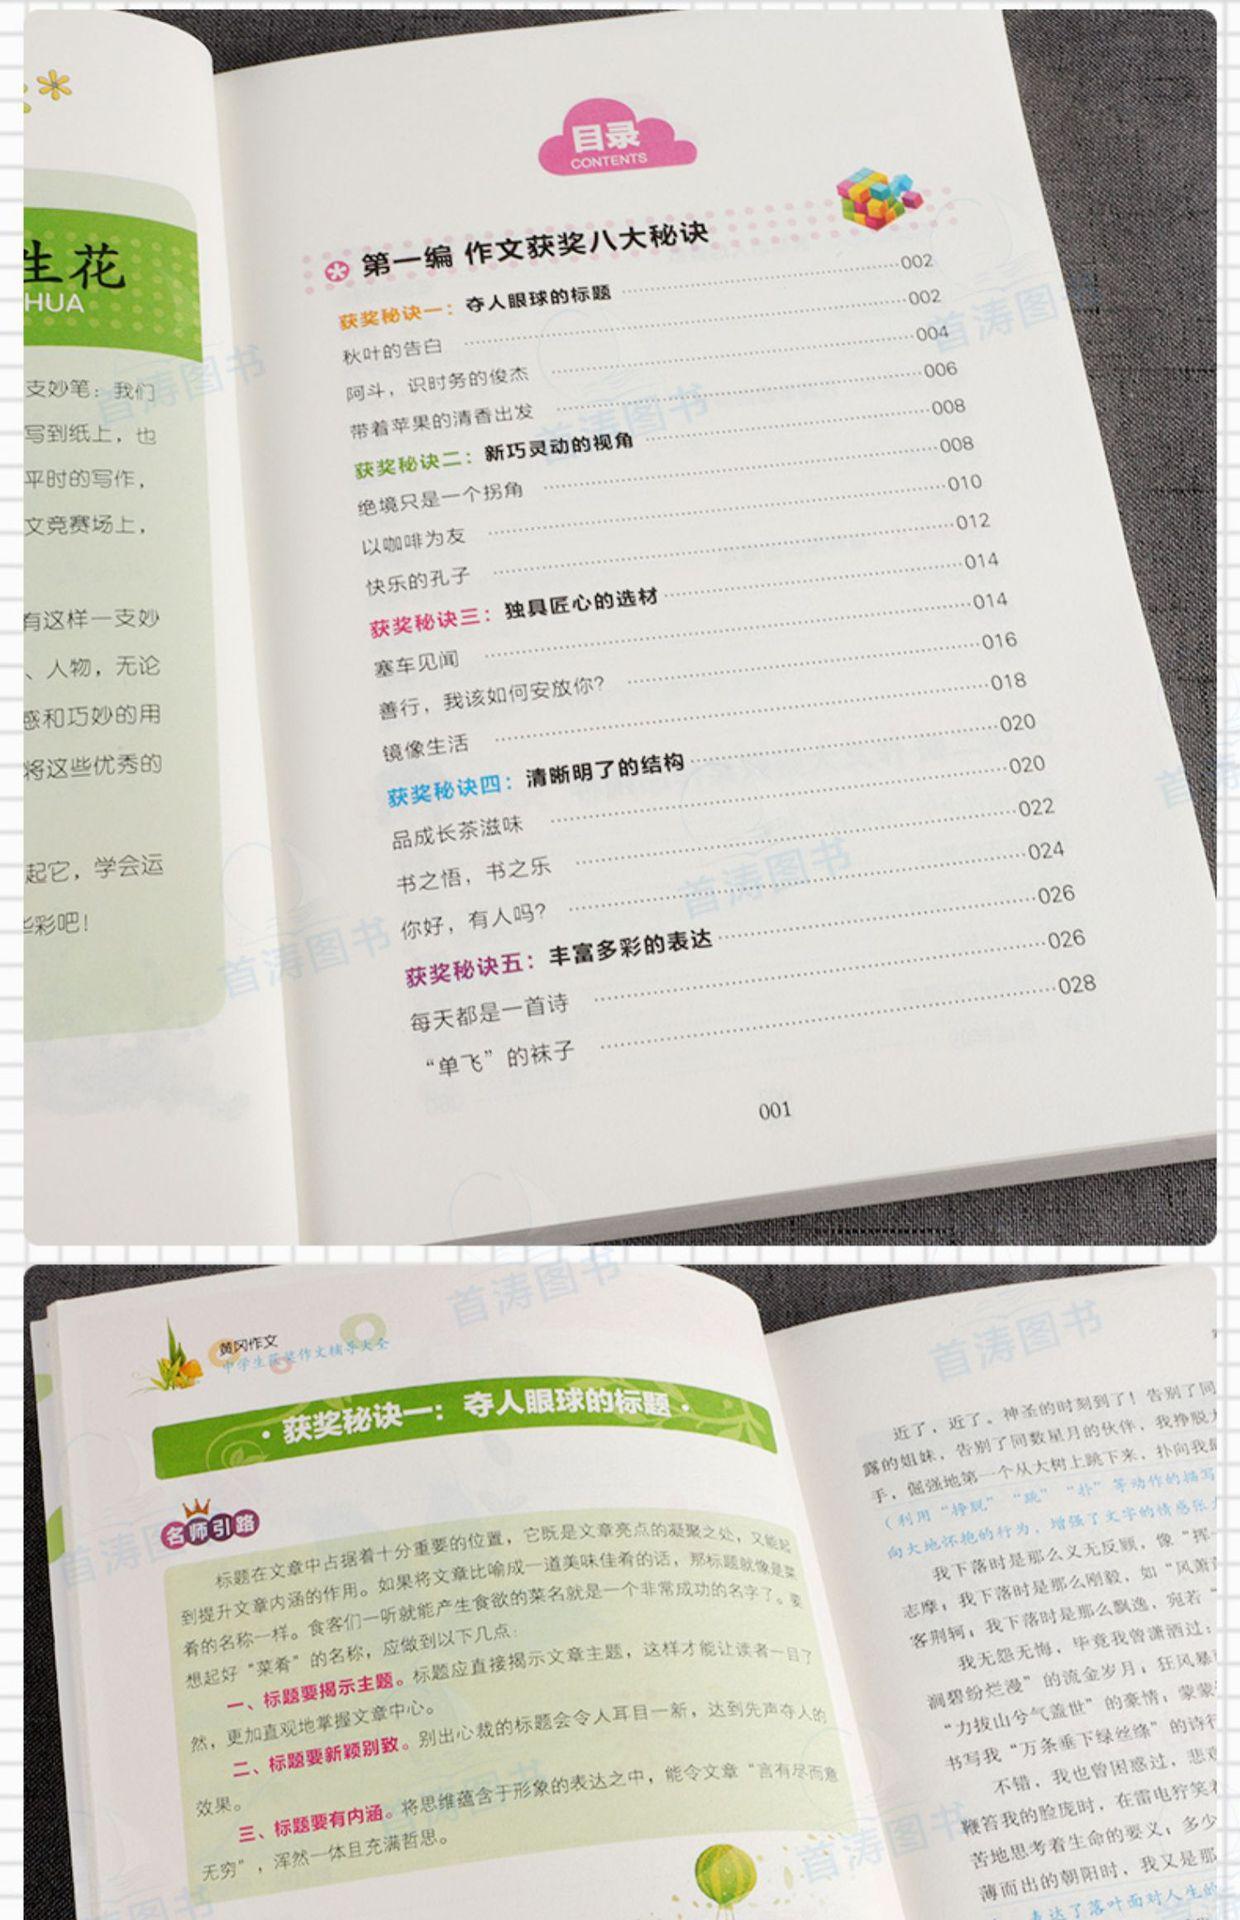 生花
HUA
支妙笔：我们
写到纸上，也
平时的写作，
文竞赛场上，
有这样一支妙
、人物，无论
感和巧妙的用
将这些优秀的
起它，学会运
彩吧！
目录
CONTENTS
第一编 作文获奖八大秘诀
获奖秘诀一：夺人眼球的标题 002
秋叶的告白 002
阿斗，识时务的俊杰 004
带着苹果的清香出发 006
获奖秘诀二：新巧灵动的视角 008
绝境只是一个拐角 008
以咖啡为友 010
快乐的孔子 012
获奖秘诀三：独具匠心的选材 014
塞车见闻 014
善行，我该如何安放你？ 016
镜像生活 018
获奖秘诀四：清晰明了的结构 020
品成长茶滋味 020
书之悟，书之乐 022
你好，有人吗？ 024
获奖秘诀五：丰富多彩的表达 026
每天都是一首诗 026
“单飞”的袜子 028
001
黄冈作文
中学生获奖作文辅导大全
·获奖秘诀一：夺人眼球的标题·
名师引路
标题在文章中占据着十分重要的位置，它既是文章亮点的凝聚之处，又能起
到提升文章内涵的作用。如果将文章比喻成一道美味佳肴的话，那标题就像是菜
肴的名称一样。食客们一听就能产生食欲的菜名就是一个非常成功的名字了。要
想起好“菜肴”的名称，应做到以下几点：
一、标题要揭示主题。标题应直接揭示文章主题，这样才能让读者一目了
然，更加直观地掌握文章中心。
二、标题要新颖别致。别出心裁的标题会令人耳目一新，达到先声夺人的
效果。
三、标题要有内涵。将思维蕴含于形象的表达之中，能令文章“言有尽而意
无穷”，浑然一体且充满哲思。
近了，近了。神圣的时刻到了！告别了同
露的姐妹，告别了同数星月的伙伴，我挣脱大
手，倔强地第一个从大树上跳下来，扑向我
（利用“挣脱”“跳”“扑”等动作的描写
向大地怀抱的行为，增强了文字的情感张
我下落时是那么义无反顾，像“挥一
志摩；我下落时是那么刚毅，如“风萧萧
客荆轲；我下落时是那么飘逸，宛若“
我无怨无悔，毕竟我曾潇洒过：
涧碧纷烂漫”的流金岁月；狂风暴
“力拔山兮气盖世”的豪情；蒙蒙
书写我“万条垂下绿丝绦”的诗行
不错，我也曾困惑过，悲观
鞭笞我的脸庞时，在雷电狞笑着
苦地思考着生命的要义；多少
薄而出的朝阳时，我又是那
表达了落叶面对人生的
首涛图书
首涛图书
首涛图书
首涛图书
首涛图书
首涛图书
首涛图书
首涛图书
首涛图书